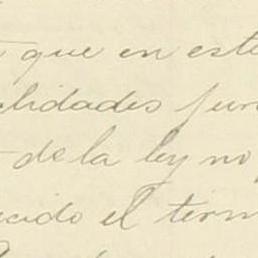 que en este
alidades
de la ley no
cido el term